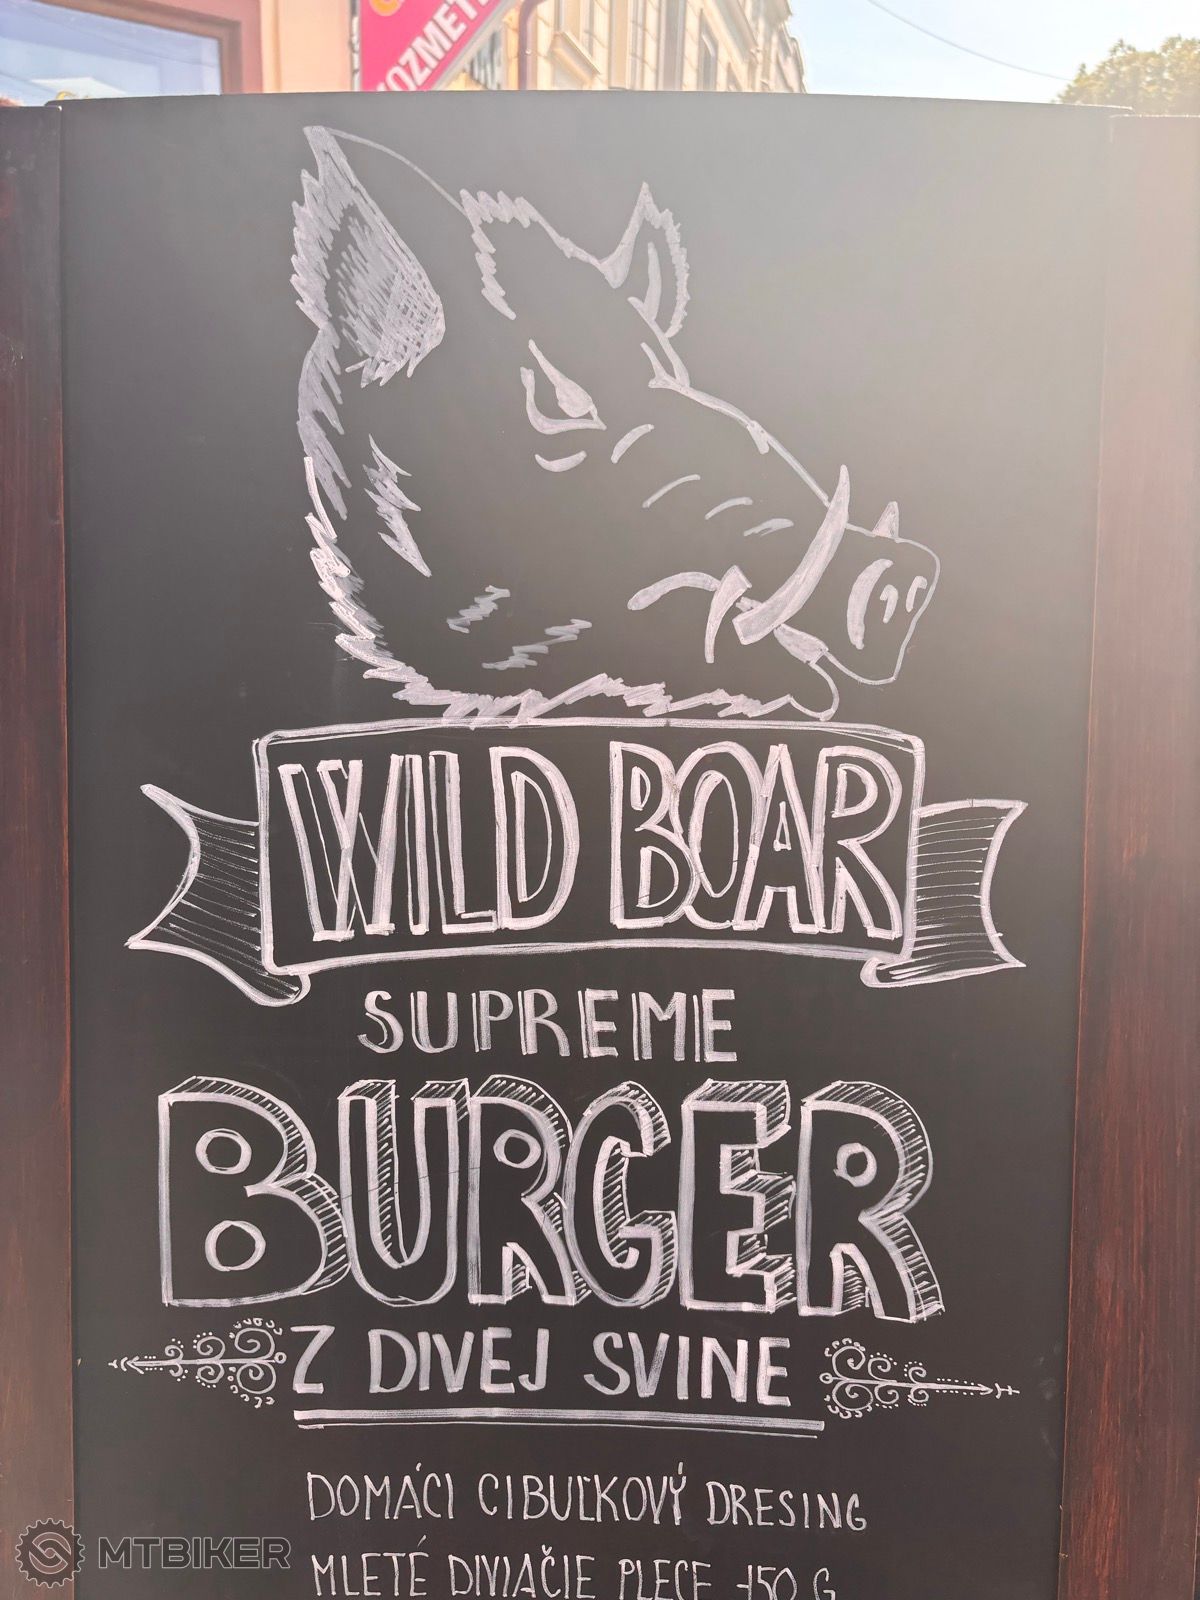 KOZMETI
WILD BOAR
SUPREME
BURGER
Z DIVEJ SVINE
DOMÁCI CIBUĽKOVÝ DRESING
MLETÉ DIVIAČIE PLECE 150 G
MTBIKER